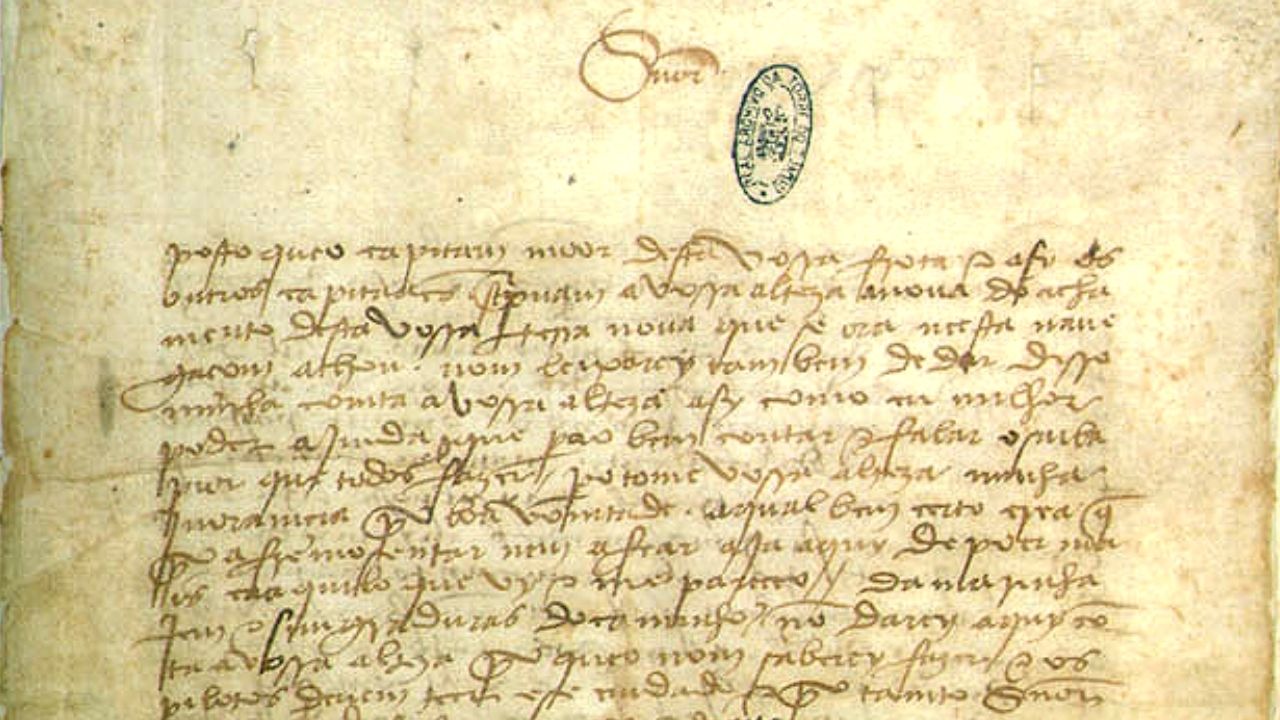 Snõr
REAL ARCHIVO DA TORRE DO TOMBO
posto queo capitam moor desta vossa frota e asy os
outros capitaães screpuam a vossa alteza a noua do acha
mento desta vossa terra noua que se ora neesta naue
gaçom achou. nom leixarey tambem de dar disso
minha comta a vossa alteza asy como eu milhor
poder ajmda que pera o bem contar e falar o saiba
pior que todos fazer / pero tome vossa alteza minha
jnoramçia por boa vomtade. aqual bem certo crea q̃
por afremosentar nem afear aja aquy de poer ma
is caaquilo que vy e me pareceo // da marinha
jem e simgraduras do caminho / nõ darey aquy cõ
ta a vossa alteza por queo nom saberey fazer e os
pilotos deuem teer ese cuidado e por tamto Snõr